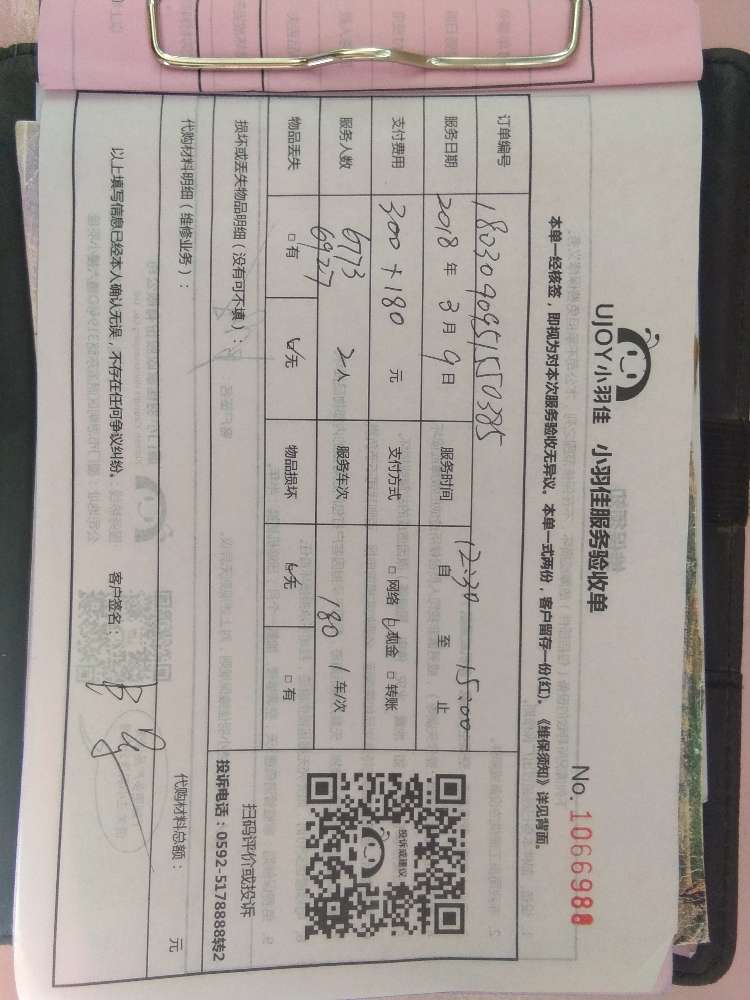 UJOY小羽佳 小羽佳服务验收单
No. 1066988
本单一经核签，即视为对本次服务验收无异议。本单一式两份，客户留存一份(红)。《维保须知》详见背面。
订单编号 18030909515550385
服务日期 2018 年 3 月 9 日 服务时间 自 12:30 至 15:00 止
支付费用 300+180 元 支付方式 □网络 ☑现金 □转账
服务人数 6773 6927 2人 服务车次 180 1车/次
物品丢失 □有 ☑无 物品损坏 ☑无 □有
投诉或建议
扫码评价或投诉
投诉电话：0592-5178888转2
损坏或丢失物品明细（没有可不填）：
代购材料明细（维修业务）：
代购材料总额： 元
以上填写信息已经本人确认无误，不存在任何争议纠纷。 客户签名：